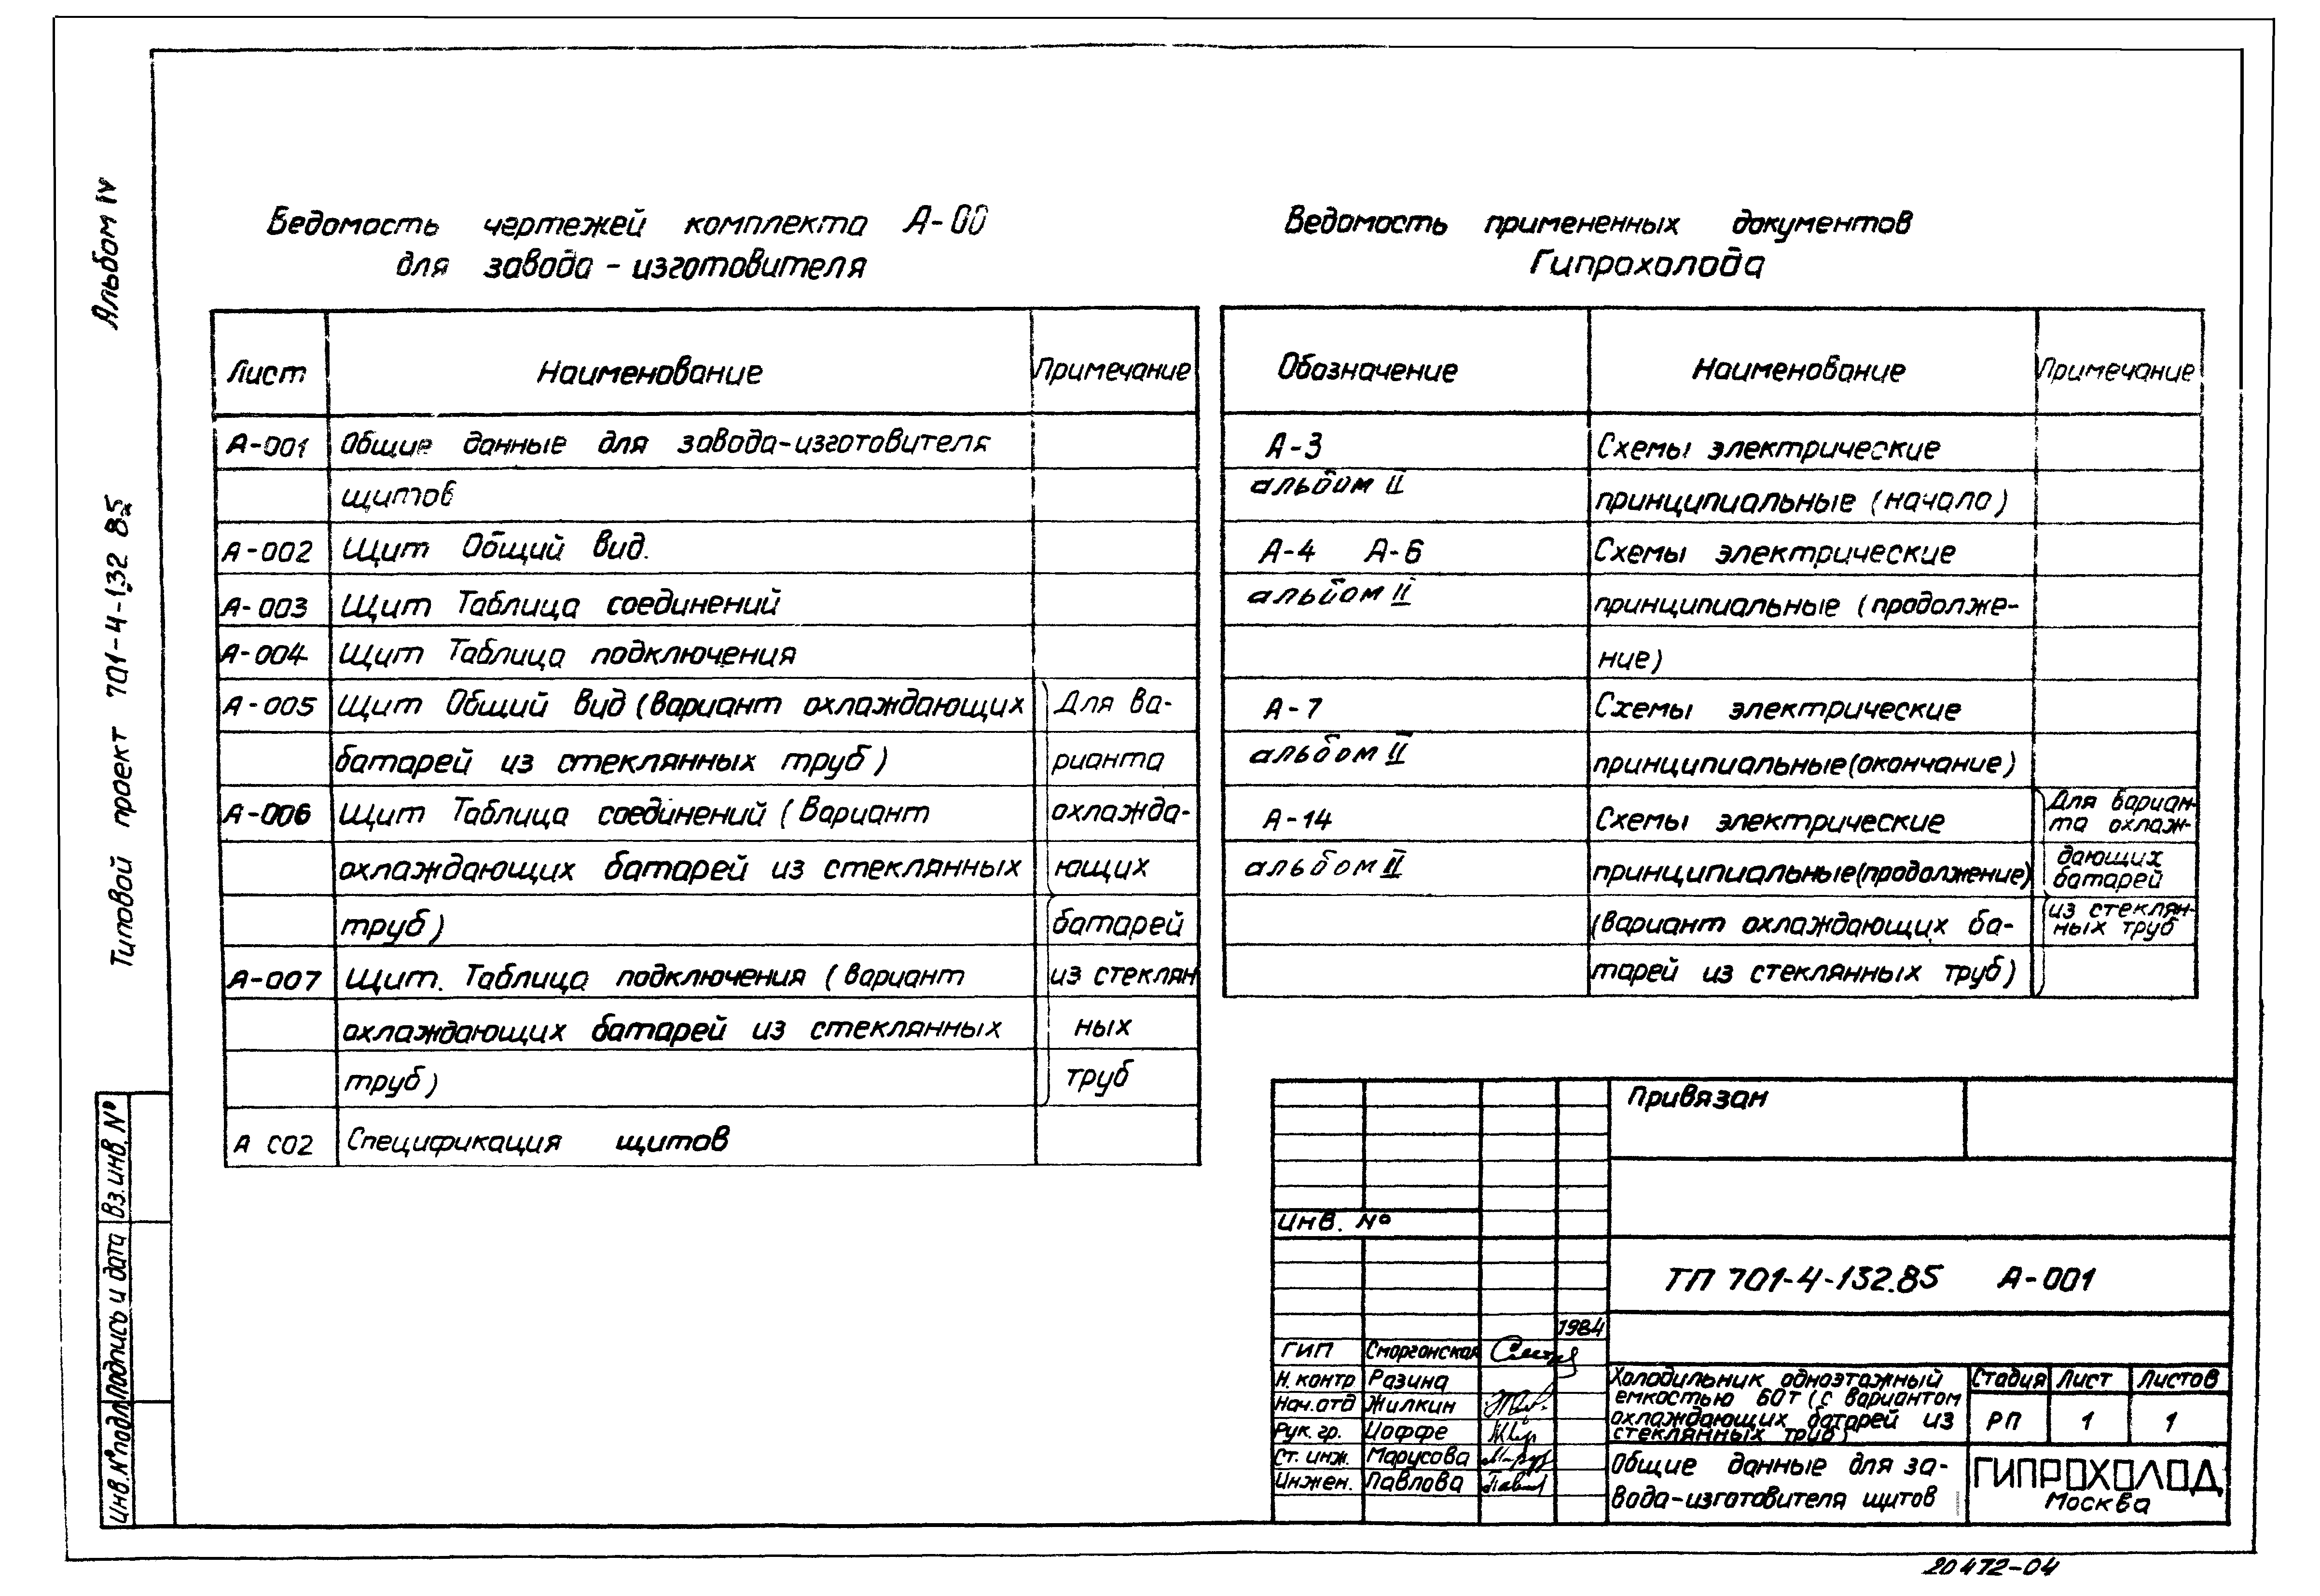 Альбом IV
Типовой проект 701-4-132 85
Ведомость чертежей комплекта А-00
для завода-изготовителя
Лист Наименование Примечание
А-001 Общие данные для завода-изготовителя
щитов
А-002 Щит Общий вид.
А-003 Щит Таблица соединений
А-004 Щит Таблица подключения
А-005 Щит Общий вид (вариант охлаждающих Для ва-
батарей из стеклянных труб) рианта
А-006 Щит Таблица соединений (Вариант охлажда-
охлаждающих батарей из стеклянных ющих
труб) батарей
А-007 Щит. Таблица подключения (вариант из стеклян
охлаждающих батарей из стеклянных ных
труб) труб
А С02 Спецификация щитов
Ведомость примененных документов
Гипрохолода
Обозначение Наименование Примечание
А-3 Схемы электрические
альбом II принципиальные (начало)
А-4 А-6 Схемы электрические
альбом II принципиальные (продолже-
ние)
А-7 Схемы электрические
альбом II принципиальные (окончание)
А-14 Схемы электрические Для вариан-
та охлаж-
альбом II принципиальные (продолжение) дающих
батарей
(вариант охлаждающих ба- из стеклян-
ных труб
тарей из стеклянных труб)
Привязан
Инв. №
ТП 701-4-132.85 А-001
1984
ГИП Сморгонская
Н. контр Разина
Нач. отд Жилкин
Рук. гр. Иоффе
Ст. инж. Марусова
Инжен. Павлова
Холодильник одноэтажный
емкостью 60т (с вариантом
охлаждающих батарей из
стеклянных труб)
Стадия Лист Листов
РП 1 1
Общие данные для за-
вода-изготовителя щитов
ГИПРОХОЛОД
Москва
Вз. инв. №
Подпись и дата
Инв. № подл
20472-04